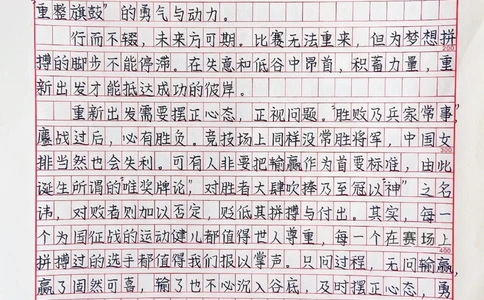 重整旗鼓”的勇气与动力。
行而不辍，未来方可期。比赛无法重来，但为梦想拼
搏的脚步不能停滞。在失意和低谷中昂首，积蓄力量，重
新出发才能抵达成功的彼岸。
重新出发需要摆正心态，正视问题。“胜败乃兵家常事”，
鏖战过后，必有胜负。竞技场上同样没常胜将军，中国女
排当然也会失利。可有人非要把输赢作为首要标准，由此
诞生所谓的“唯奖牌论”，对胜者大肆吹捧乃至冠以“神”之名
讳，对败者则加以否定，贬低其拼搏与付出。其实，每一
个为国征战的运动健儿都值得世人尊重，每一个在赛场上
拼搏过的选手都值得我们报以掌声。只问过程，无问输赢，
赢了固然可喜，输了也不必沉入谷底，及时摆正心态，勇
200
300
400